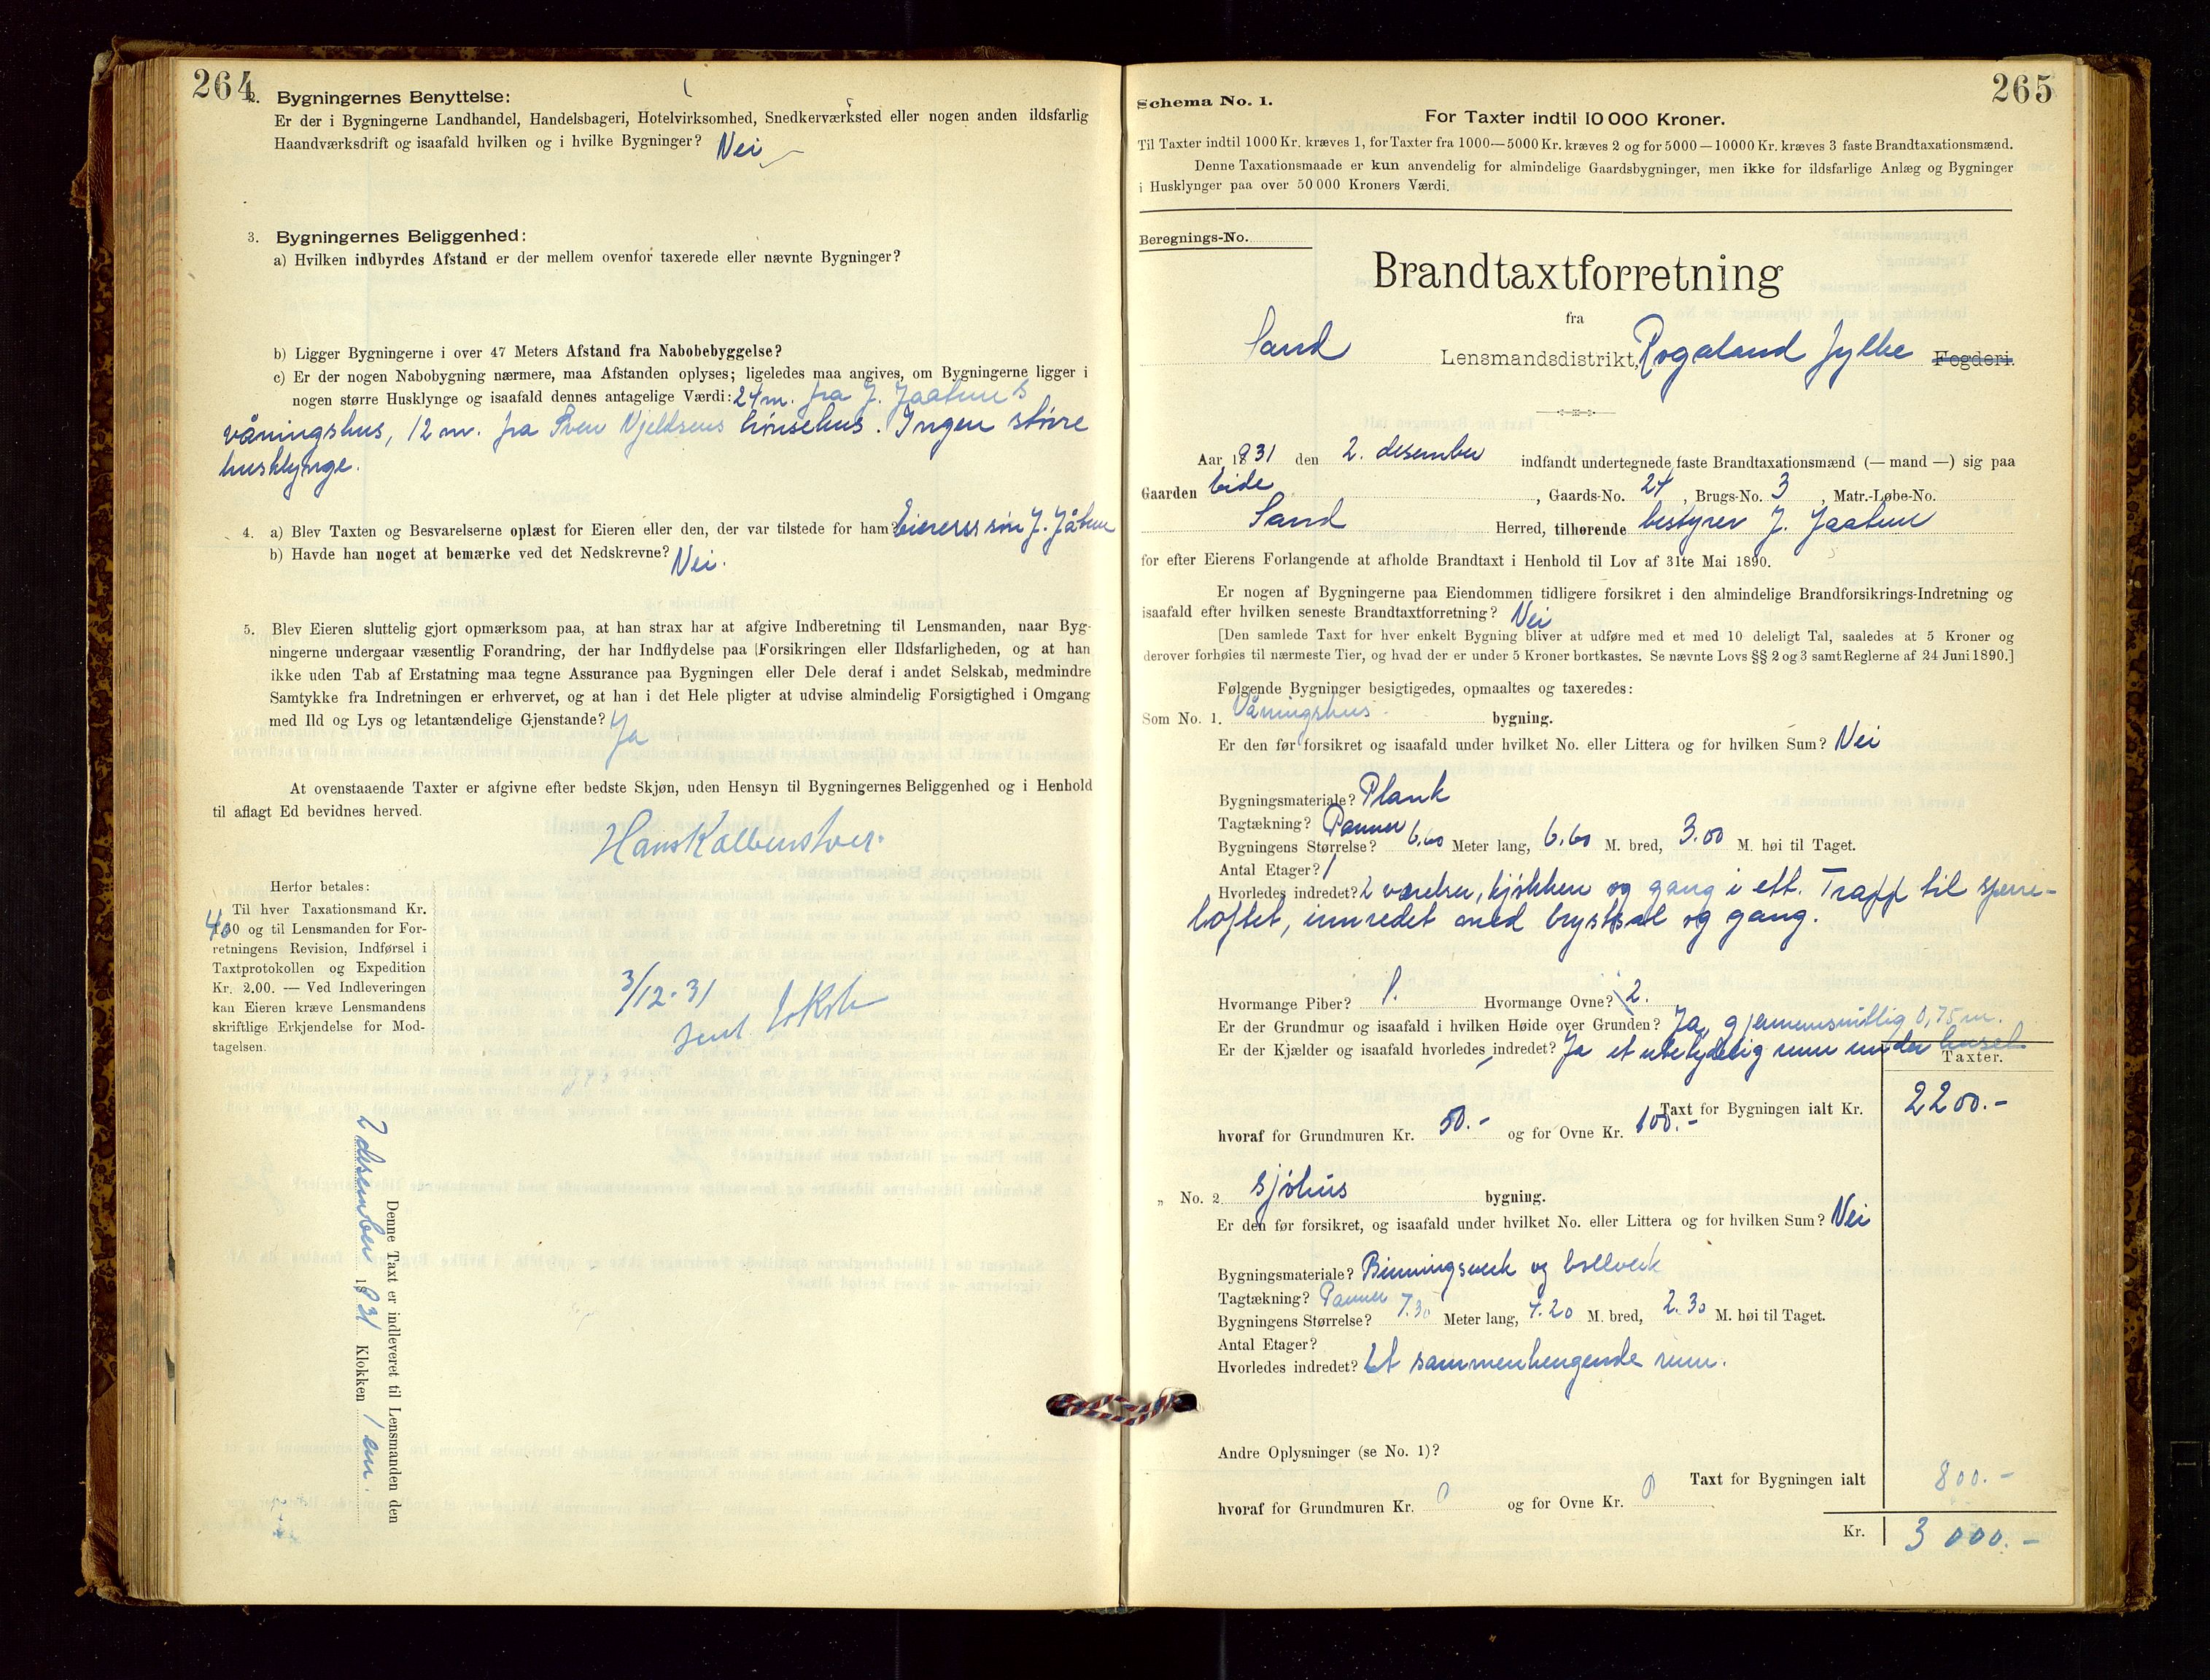 264
2. Bygningernes Benyttelse:
Er der i Bygningerne Landhandel, Handelsbageri, Hotelvirksomhed, Snedkerværksted eller nogen anden ildsfarlig
Haandværksdrift og isaafald hvilken og i hvilke Bygninger? Nei
3. Bygningernes Beliggenhed:
a) Hvilken indbyrdes Afstand er der mellem ovenfor taxerede eller nævnte Bygninger?
b) Ligger Bygningerne i over 47 Meters Afstand fra Nabobebyggelse?
c) Er der nogen Nabobygning nærmere, maa Afstanden oplyses; ligeledes maa angives, om Bygningerne ligger i
nogen større Husklynge og isaafald dennes antagelige Værdi: 24 m. fra J. Jaatuns
våningshus, 12 m. fra Sven Kjeldsens hönsehus. Ingen större
husklynge.
4. a) Blev Taxten og Besvarelserne oplæst for Eieren eller den, der var tilstede for ham? Eierens sön J. Jåtun
b) Havde han noget at bemærke ved det Nedskrevne? Nei.
5. Blev Eieren sluttelig gjort opmærksom paa, at han strax har at afgive Indberetning til Lensmanden, naar Byg-
ningerne undergaar væsentlig Forandring, der har Indflydelse paa Forsikringen eller Ildsfarligheden, og at han
ikke uden Tab af Erstatning maa tegne Assurance paa Bygningen eller Dele deraf i andet Selskab, medmindre
Samtykke fra Indretningen er erhvervet, og at han i det Hele pligter at udvise almindelig Forsigtighed i Omgang
med Ild og Lys og letantændelige Gjenstande? Ja
At ovenstaaende Taxter er afgivne efter bedste Skjøn, uden Hensyn til Bygningernes Beliggenhed og i Henhold
til aflagt Ed bevidnes herved.
Hans Kolbenstver
Herfor betales:
Til hver Taxationsmand Kr.
4.00 og til Lensmanden for For-
retningens Revision, Indførsel i
Taxtprotokollen og Expedition
Kr. 2.00. — Ved Indleveringen
kan Eieren kræve Lensmandens
skriftlige Erkjendelse for Mod-
tagelsen.
3/12-31
sent
Denne Taxt er indleveret til Lensmanden den
2 desember 1931 Klokken 1 em.
265
Schema No. 1.
For Taxter indtil 10 000 Kroner.
Til Taxter indtil 1000 Kr. kræves 1, for Taxter fra 1000—5000 Kr. kræves 2 og for 5000—10000 Kr. kræves 3 faste Brandtaxationsmænd.
Denne Taxationsmaade er kun anvendelig for almindelige Gaardsbygninger, men ikke for ildsfarlige Anlæg og Bygninger
i Husklynger paa over 50 000 Kroners Værdi.
Beregnings-No.
Brandtaxtforretning
fra
Sand Lensmandsdistrikt, Rogaland fylke Fogderi.
Aar 1931 den 2. desember indfandt undertegnede faste Brandtaxationsmænd (— mand —) sig paa
Gaarden Eide, Gaards-No. 24, Brugs-No. 3, Matr.-Løbe-No.
Sand Herred, tilhørende bestyrer J. Jaatun
for efter Eierens Forlangende at afholde Brandtaxt i Henhold til Lov af 31te Mai 1890.
Er nogen af Bygningerne paa Eiendommen tidligere forsikret i den almindelige Brandforsikrings-Indretning og
isaafald efter hvilken seneste Brandtaxtforretning? Nei
[Den samlede Taxt for hver enkelt Bygning bliver at udføre med et med 10 deleligt Tal, saaledes at 5 Kroner og
derover forhøies til nærmeste Tier, og hvad der er under 5 Kroner bortkastes. Se nævnte Lovs §§ 2 og 3 samt Reglerne af 24 Juni 1890.]
Følgende Bygninger besigtigedes, opmaaltes og taxeredes:
Som No. 1. Våningshus bygning.
Er den før forsikret og isaafald under hvilket No. eller Littera og for hvilken Sum? Nei
Bygningsmateriale? Plank
Tagtækning? Panner
Bygningens Størrelse? 6.60 Meter lang, 6.60 M. bred, 3.00 M. høi til Taget.
Antal Etager? 1
Hvorledes indredet? 2 værelser, kjökken og gang i ett. Trapp til sperre-
loftet, innredet med kvistsal og gang.
Hvormange Piber? 1. Hvormange Ovne? 2.
Er der Grundmur og isaafald i hvilken Høide over Grunden? Ja, gjennemsnitlig 0,75 m.
Er der Kjælder og isaafald hvorledes indredet? Ja et ubetydelig rum under huset
Taxter.
Taxt for Bygningen ialt Kr. 2200.-
hvoraf for Grundmuren Kr. 50.- og for Ovne Kr. 100.-
„ No. 2 Sjöhus bygning.
Er den før forsikret, og isaafald under hvilket No. eller Littera og for hvilken Sum? Nei
Bygningsmateriale? Binningsverk og bollverk
Tagtækning? Panner
Bygningens Størrelse? 7.30 Meter lang, 4.20 M. bred, 2.30 M. høi til Taget.
Antal Etager?
Hvorledes indredet? Et sammenhengende rum.
Andre Oplysninger (se No. 1)?
Taxt for Bygningen ialt 800.-
hvoraf for Grundmuren Kr. 0 og for Ovne Kr. 0
Kr. 3 000.-